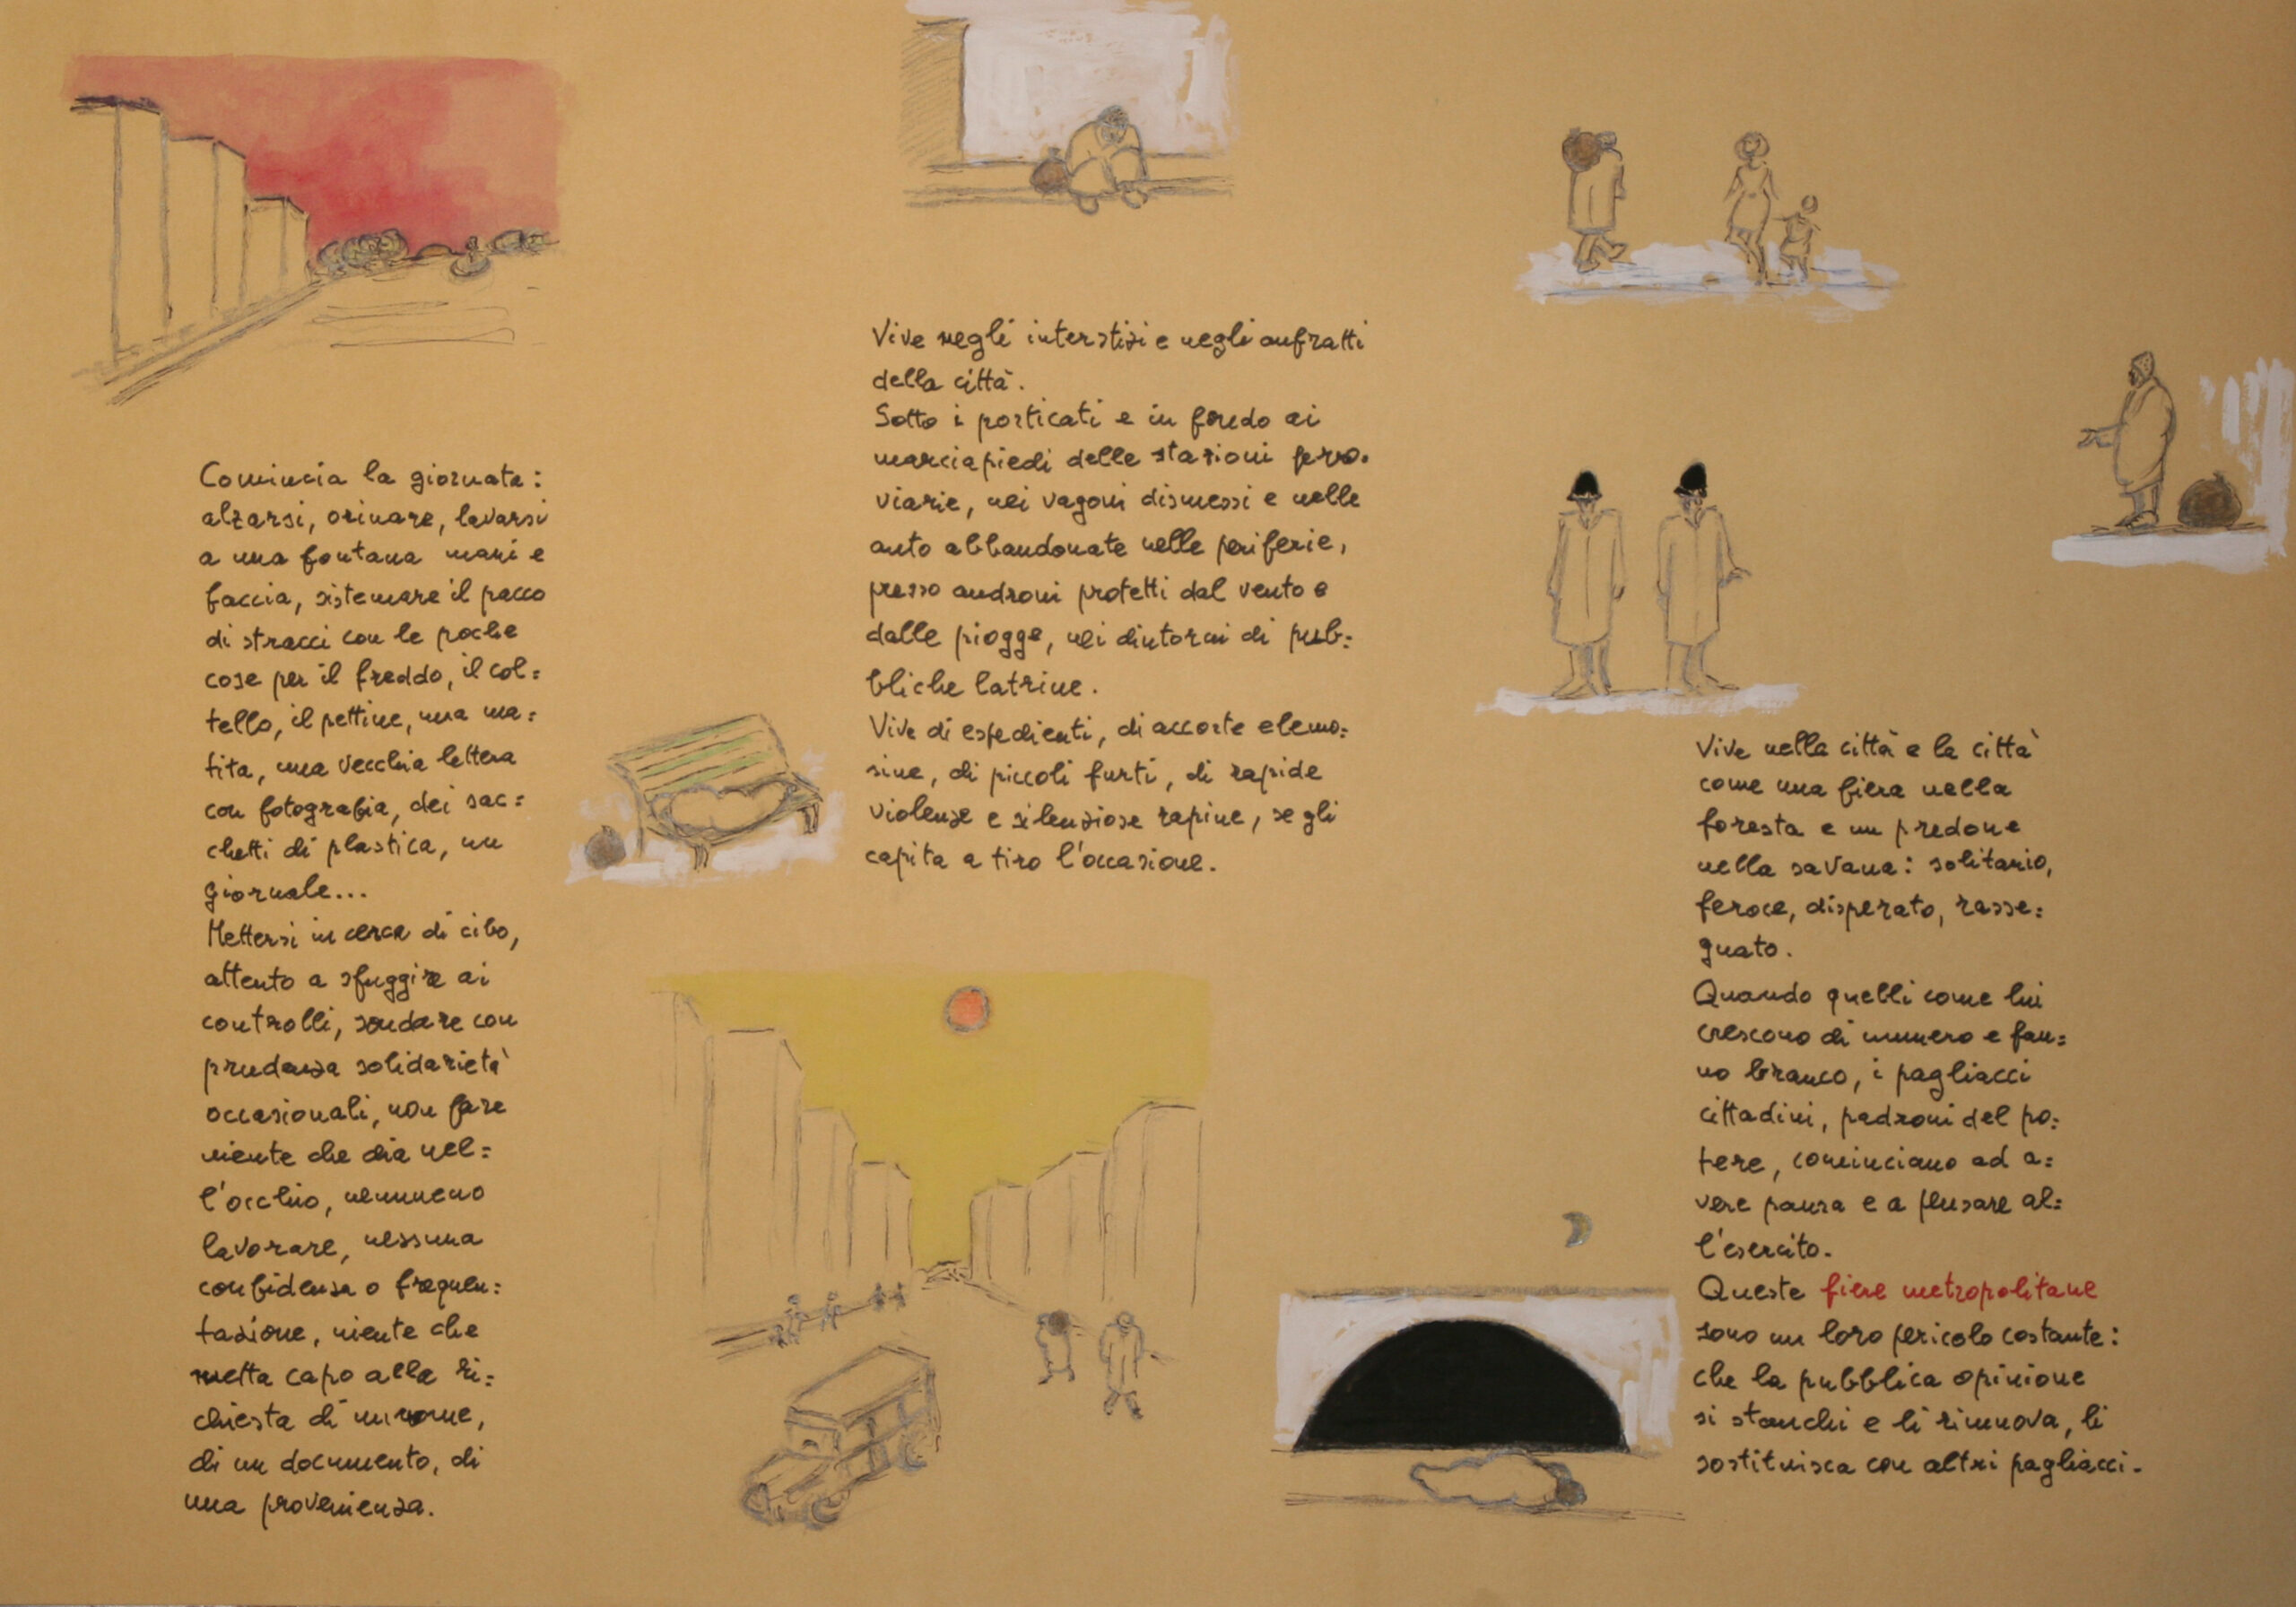 Comincia la giornata:
alzarsi, orinare, lavarsi
a una fontana mani e
faccia, sistemare il pacco
di stracci con le poche
cose per il freddo, il col=
tello, il pettine, una ma=
tita, una vecchia lettera
con fotografia, dei sac=
chetti di plastica, un
giornale...
Mettersi in cerca di cibo,
attento a sfuggire ai
controlli, sondare con
prudenza solidarietà
occasionali, non fare
niente che dia nel=
l'occhio, nemmeno
lavorare, nessuna
confidenza o frequen=
tazione, niente che
metta capo alla ri=
chiesta di un nome,
di un documento, di
una provenienza.
Vive negli interstizi e negli anfratti
della città.
Sotto i porticati e in fondo ai
marciapiedi delle stazioni ferro=
viarie, nei vagoni dismessi e nelle
auto abbandonate nelle periferie,
presso androni protetti dal vento e
dalle piogge, nei dintorni di pub=
bliche latrine.
Vive di espedienti, di accorte elemo=
sine, di piccoli furti, di rapide
violenze e silenziose rapine, se gli
capita a tiro l'occasione.
Vive nella città e la città
come una fiera nella
foresta e un predone
nella savana: solitario,
feroce, disperato, rasse=
gnato.
Quando quelli come lui
crescono di numero e fan=
no branco, i pagliacci
cittadini, padroni del po=
tere, cominciano ad a=
vere paura e a pensare al=
l'esercito.
Queste fiere metropolitane
sono un loro pericolo costante:
che la pubblica opinione
si stanchi e li rimuova, li
sostituisca con altri pagliacci.